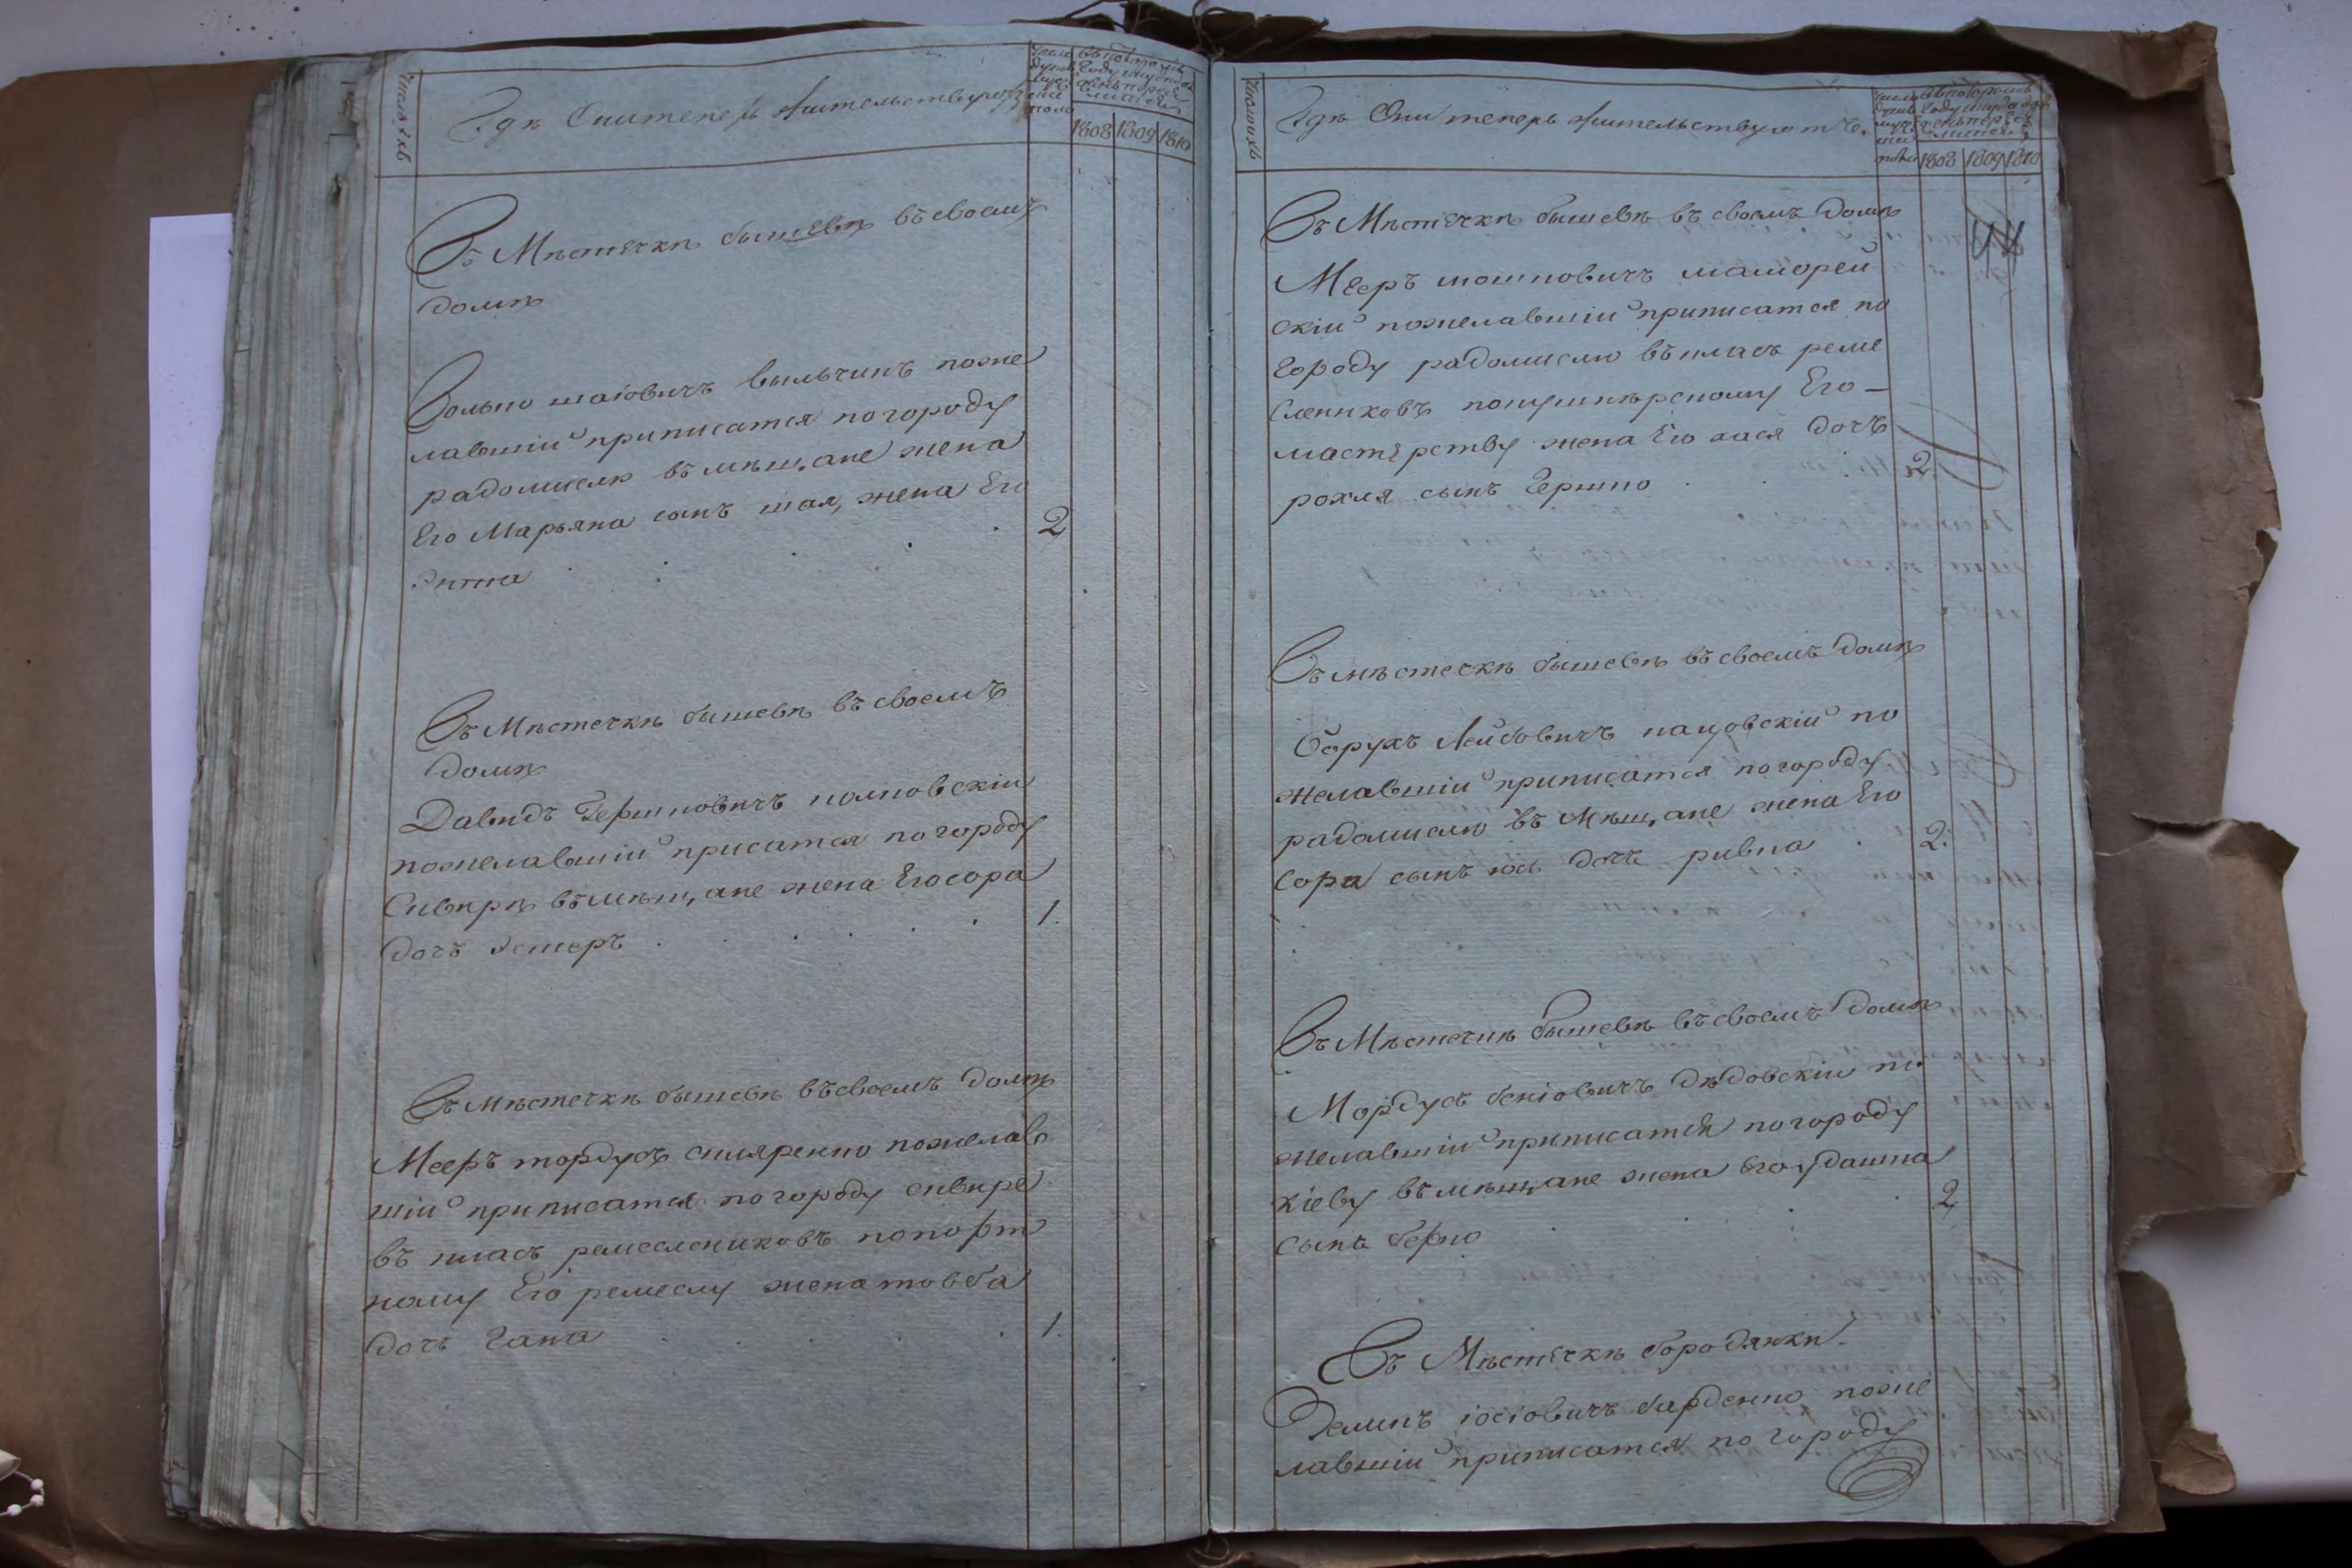 Число ихъ
Гдѣ Они теперь жительствуютъ
Число душъ мужеска пола
1808 1809 1810
Въ Мѣстечкѣ бышевѣ въ своемъ
домѣ
Волько шаiовичъ вильчикъ поже
лавшiй приписатся по городу
радомислю въ мѣщане жена
Его Марьяна сынъ шая, жена Его
2
Въ Мѣстечкѣ бышевѣ въ своемъ
домѣ
Давидъ Гершковичъ
пожелавшiй присатся по городу
Сквирѣ въ мѣщане жена Его сора
дочъ Эстеръ
1.
Въ мѣстечкѣ бышевѣ въ своемъ домѣ
Мееръ мордусъ скляренко пожелав
шiй приписатся по городу сквире
въ класъ ремесениковъ по порт
ному Его ремеслу жена товба
дочъ Гана
1.
Число ихъ
Гдѣ Они теперь жительствуютъ.
Число душъ мужеска пола
1808 1809 1810
Въ Мѣстечкѣ бышевѣ въ своемъ домѣ
Мееръ мошковичъ
скiй пожелавшiй приписатся по
городу радомислю въ класъ реме
слениковъ по кушнѣрскому Его
мастерству жена Его хася дочъ
рохля сынъ Гершко
2.
Въ мѣстечкѣ бышевѣ въ своемъ домѣ
борухъ Лейбовичъ пацовскiй по
желавшiй приписатся по городу
радомислю въ Мѣщане жена Его
Сора сынъ юсь дочъ ривка
2.
Въ Мѣстечкѣ бышевѣ въ своемъ домѣ
Мордусъ бенiовичъ дѣдовскiй по
желавшiй приписатся по городу
Кiеву въ мѣщане жена Его удашка
Сынъ берко
2
Въ Мѣстечкѣ бородянки
Зеликъ iосiовичъ поже
лавшiй приписатся по городу